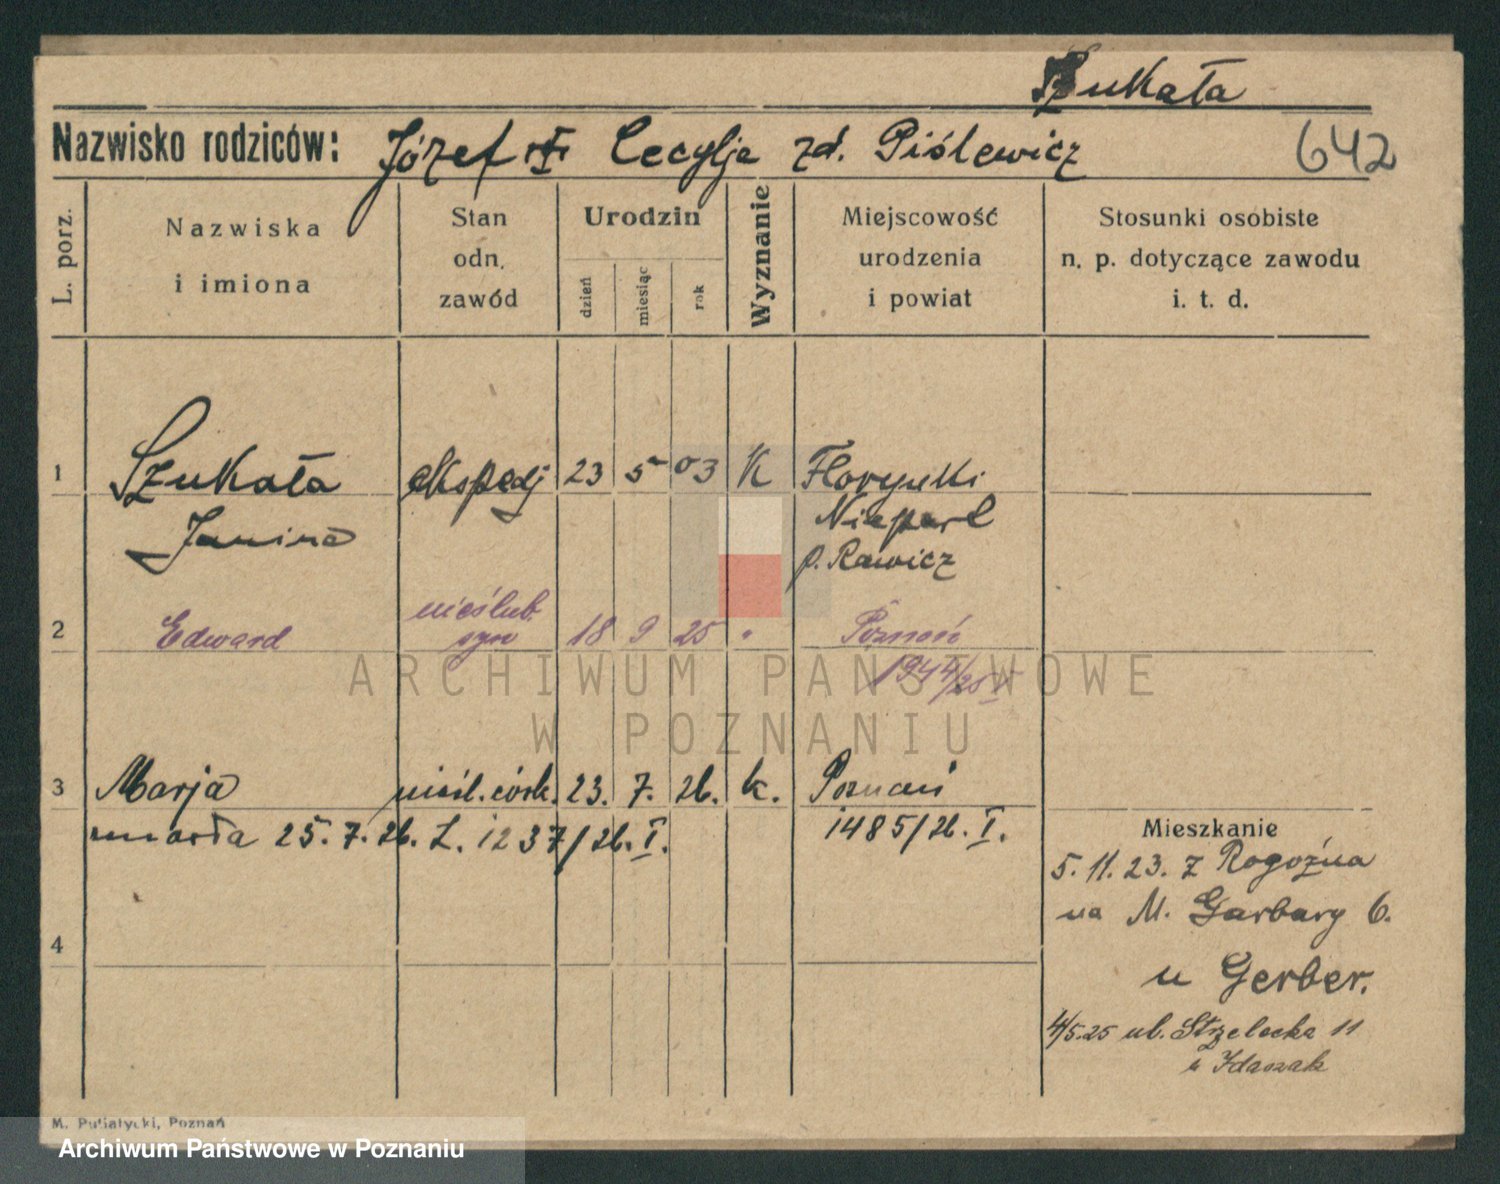 Szukała
Nazwisko rodziców: Józef i Cecylja zd. Piślewicz 642
L. porz.
Nazwiska
i imiona
Stan
odn.
zawód
Urodzin
dzień
miesiąc
rok
Wyznanie
Miejscowość
urodzenia
i powiat
Stosunki osobiste
n. p. dotyczące zawodu
i. t. d.
1 Szukała ekspedj 23 5 03 K
Janina
p. Rawicz
2 Edward nieślub. syn 18 9 25 " Poznań
1944/25 I
3 Marja nieśl. córk. 23. 7. 26. k. Poznań
zmarła 25. 7. 26. L. 1237/26. I. 1485/26. I.
4
Mieszkanie
5. 11. 23. z Rogoźna
na M. Garbary 6.
u Gerber.
4/5.25 ul. Strzelecka 11
u Idaszak
M. Putiatycki, Poznań
ARCHIWUM PAŃSTWOWE
W POZNANIU
Archiwum Państwowe w Poznaniu